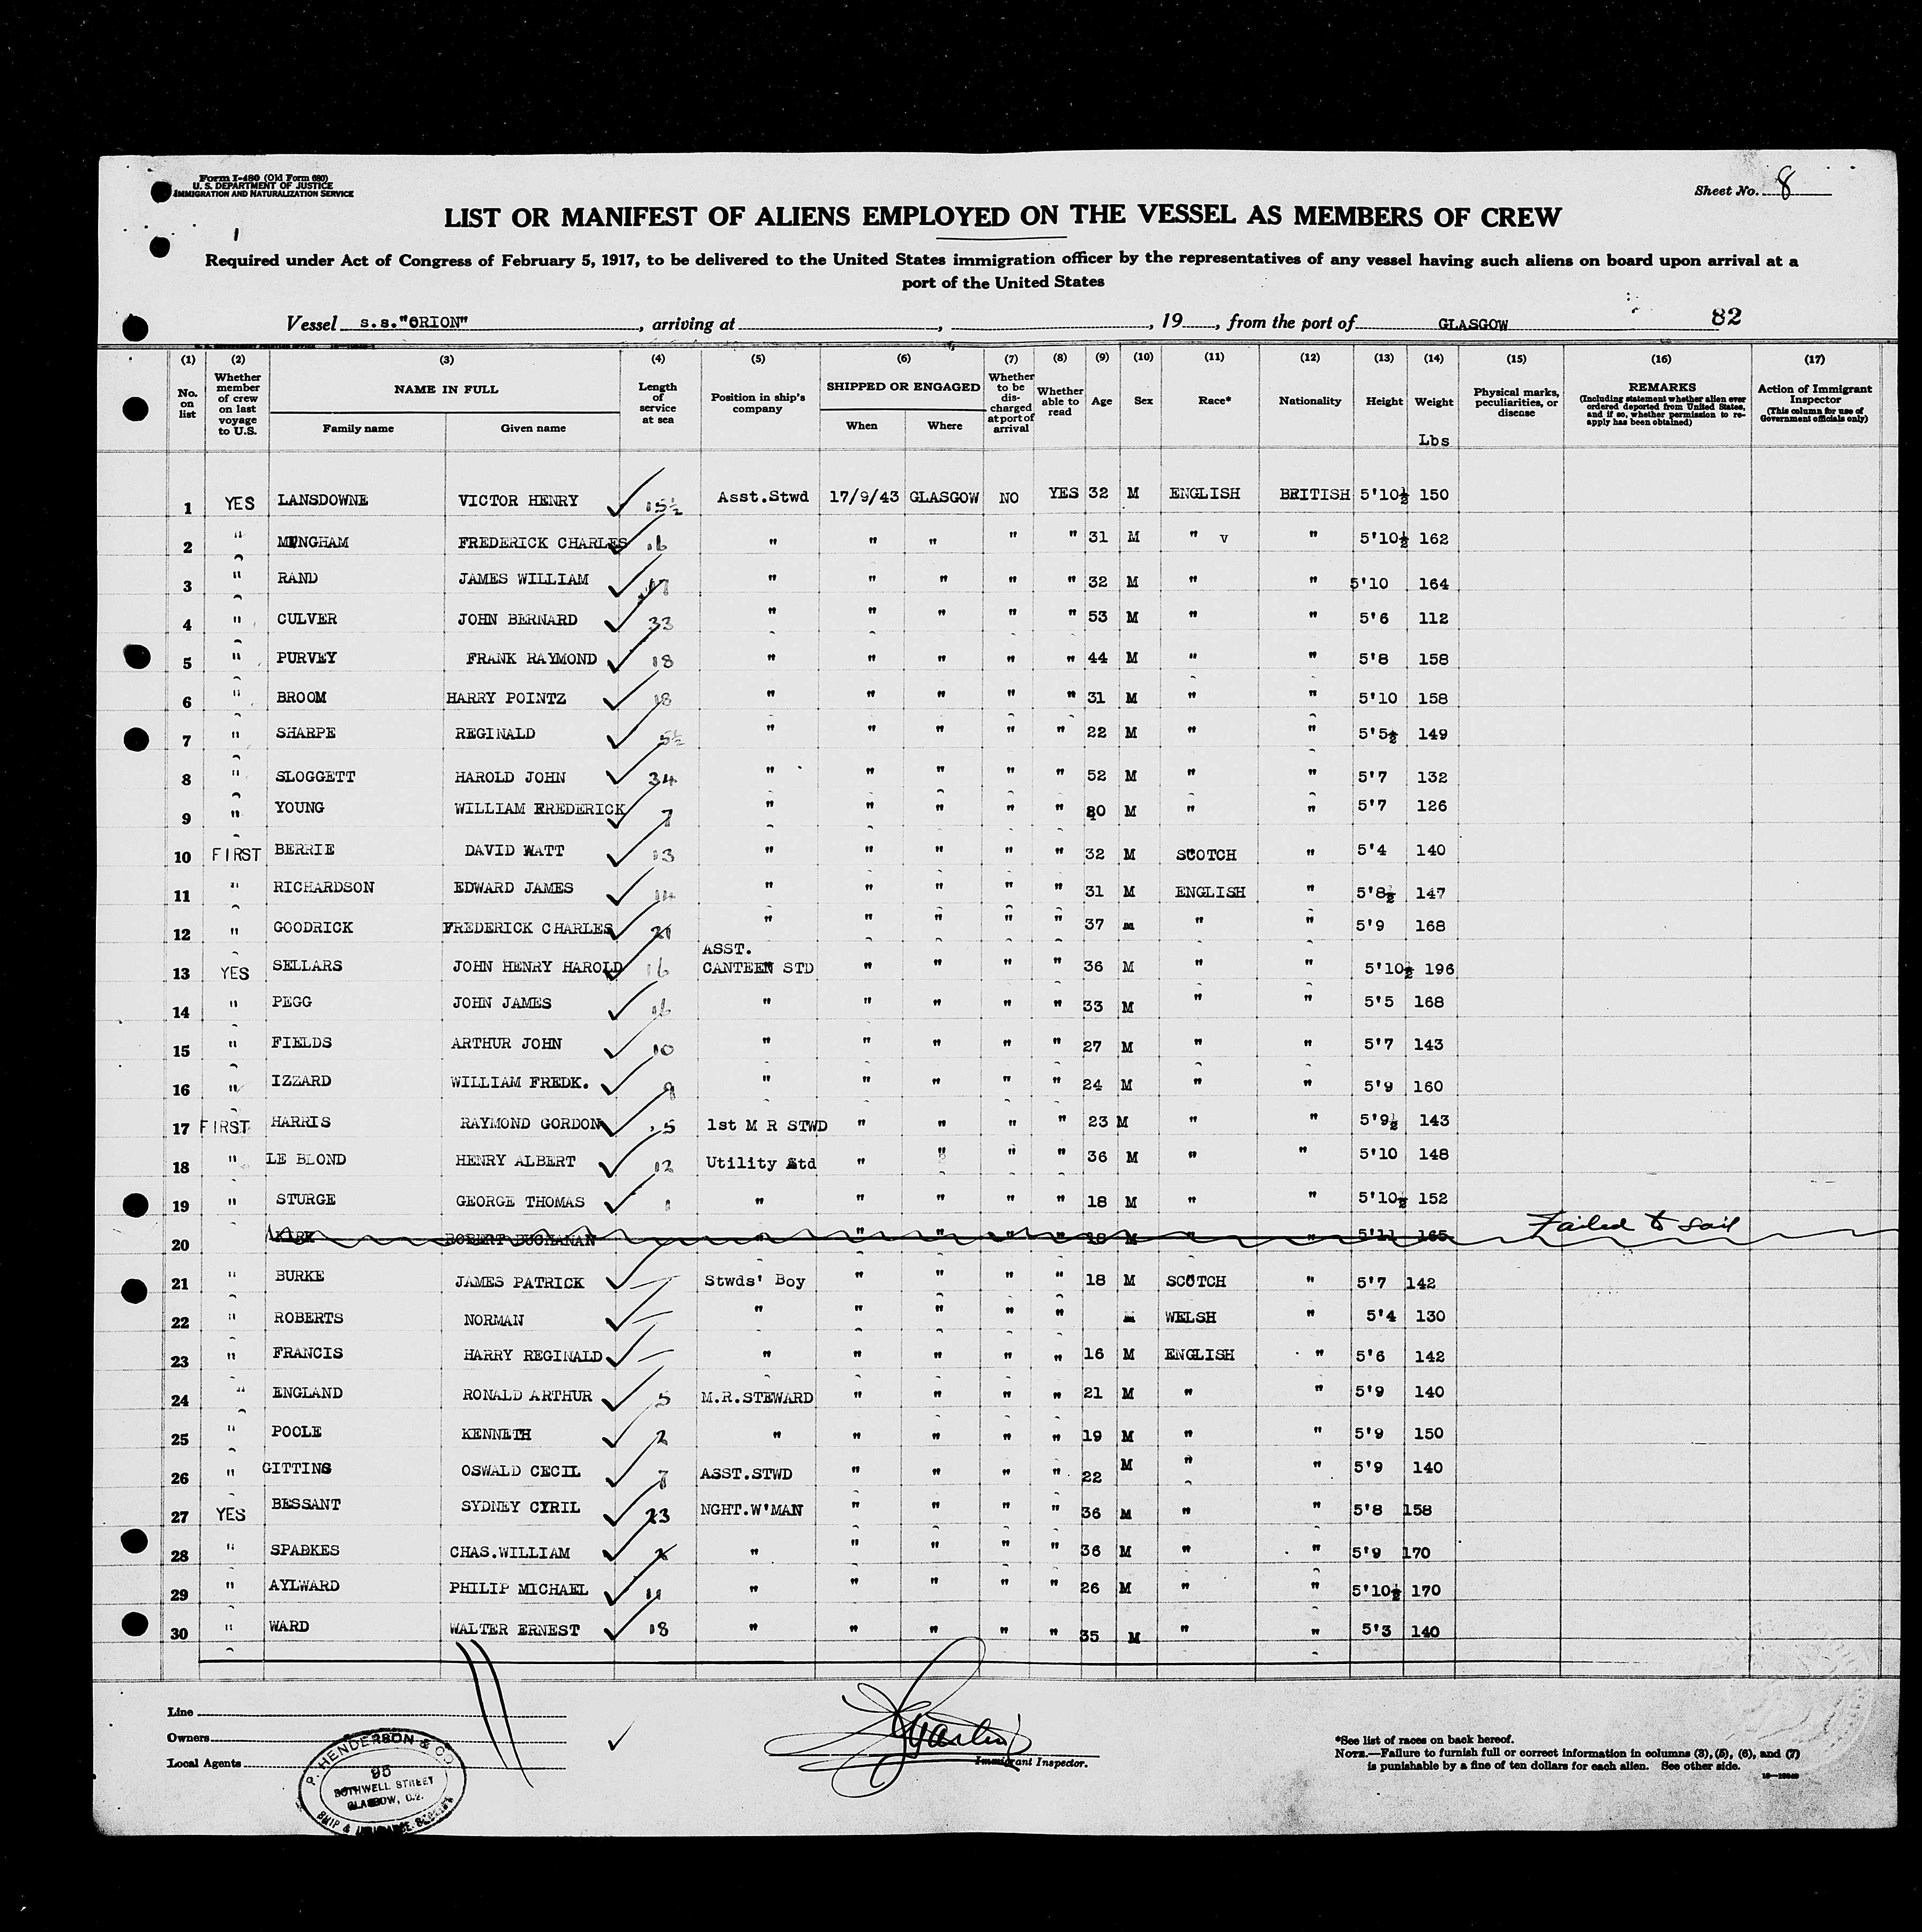 Form I-480 (Old Form 680)
U. S. DEPARTMENT OF JUSTICE
IMMIGRATION AND NATURALIZATION SERVICE
Sheet No. 8
LIST OR MANIFEST OF ALIENS EMPLOYED ON THE VESSEL AS MEMBERS OF CREW
Required under Act of Congress of February 5, 1917, to be delivered to the United States immigration officer by the representatives of any vessel having such aliens on board upon arrival at a
port of the United States
Vessel s.s."ORION", arriving at , , 19 , from the port of GLASGOW 82
(1) (2) (3) (4) (5) (6) (7) (8) (9) (10) (11) (12) (13) (14) (15) (16) (17)
No. on list Whether member of crew on last voyage to U.S. NAME IN FULL Family name Given name Length of service at sea Position in ship's company SHIPPED OR ENGAGED When Where Whether to be discharged at port of arrival Whether able to read Age Sex Race* Nationality Height Weight Lbs Physical marks, peculiarities, or disease REMARKS (Including statement whether alien ever ordered deported from United States, and if so, whether permission to re-apply has been obtained) Action of Immigrant Inspector (This column for use of Government officials only)
1 YES LANSDOWNE VICTOR HENRY 15½ Asst.Stwd 17/9/43 GLASGOW NO YES 32 M ENGLISH BRITISH 5'10½ 150
2 " MUNGHAM FREDERICK CHARLES 16 " " " " " 31 M " v " 5'10½ 162
3 " RAND JAMES WILLIAM 17 " " " " " 32 M " " 5'10 164
4 " CULVER JOHN BERNARD 33 " " " " " 53 M " " 5'6 112
5 " PURVEY FRANK RAYMOND 18 " " " " " 44 M " " 5'8 158
6 " BROOM HARRY POINTZ 18 " " " " " 31 M " " 5'10 158
7 " SHARPE REGINALD 5½ " " " " " 22 M " " 5'5½ 149
8 " SLOGGETT HAROLD JOHN 34 " " " " " 52 M " " 5'7 132
9 " YOUNG WILLIAM FREDERICK 7 " " " " " M " " 5'7 126
10 FIRST BERRIE DAVID WATT 13 " " " " " 32 M SCOTCH " 5'4 140
11 " RICHARDSON EDWARD JAMES 14 " " " " " 31 M ENGLISH " 5'8½ 147
12 " GOODRICK FREDERICK CHARLES 21 " " " " " 37 m " " 5'9 168
13 YES SELLARS JOHN HENRY HAROLD 16 ASST. CANTEEN STD " " " " 36 M " " 5'10½ 196
14 " PEGG JOHN JAMES 16 " " " " " 33 M " " 5'5 168
15 " FIELDS ARTHUR JOHN 10 " " " " " 27 M " " 5'7 143
16 " IZZARD WILLIAM FREDK. 9 " " " " " 24 M " " 5'9 160
17 FIRST HARRIS RAYMOND GORDON 5 1st M R STWD " " " " 23 M " " 5'9½ 143
18 " LE BLOND HENRY ALBERT 12 Utility Std " " " " 36 M " " 5'10 148
19 " STURGE GEORGE THOMAS 1 " " " " " 18 M " " 5'10½ 152
20 KIRK ROBERT BUCHANAN " " " " " 18 M " " 5'11 165 Failed to sail
21 " BURKE JAMES PATRICK — Stwds' Boy " " " " 18 M SCOTCH " 5'7 142
22 " ROBERTS NORMAN — " " " " " m WELSH " 5'4 130
23 " FRANCIS HARRY REGINALD — " " " " " 16 M ENGLISH " 5'6 142
24 " ENGLAND RONALD ARTHUR 5 M.R.STEWARD " " " " 21 M " " 5'9 140
25 " POOLE KENNETH 2 " " " " " 19 M " " 5'9 150
26 " GITTINS OSWALD CECIL 7 ASST.STWD " " " " 22 M " " 5'9 140
27 YES BESSANT SYDNEY CYRIL 23 NGHT.W'MAN " " " " 36 M " " 5'8 158
28 " SPARKES CHAS.WILLIAM 2 " " " " " 36 M " " 5'9 170
29 " AYLWARD PHILIP MICHAEL 11 " " " " " 26 M " " 5'10½ 170
30 " WARD WALTER ERNEST 18 " " " " " 35 M " " 5'3 140
Line
Owners
Local Agents
P. HENDERSON & CO
95
BOTHWELL STREET
GLASGOW, C.2.
SHIP & INSURANCE BROKERS
Immigrant Inspector.
*See list of races on back hereof.
NOTE.—Failure to furnish full or correct information in columns (3), (5), (6), and (7)
is punishable by a fine of ten dollars for each alien. See other side.